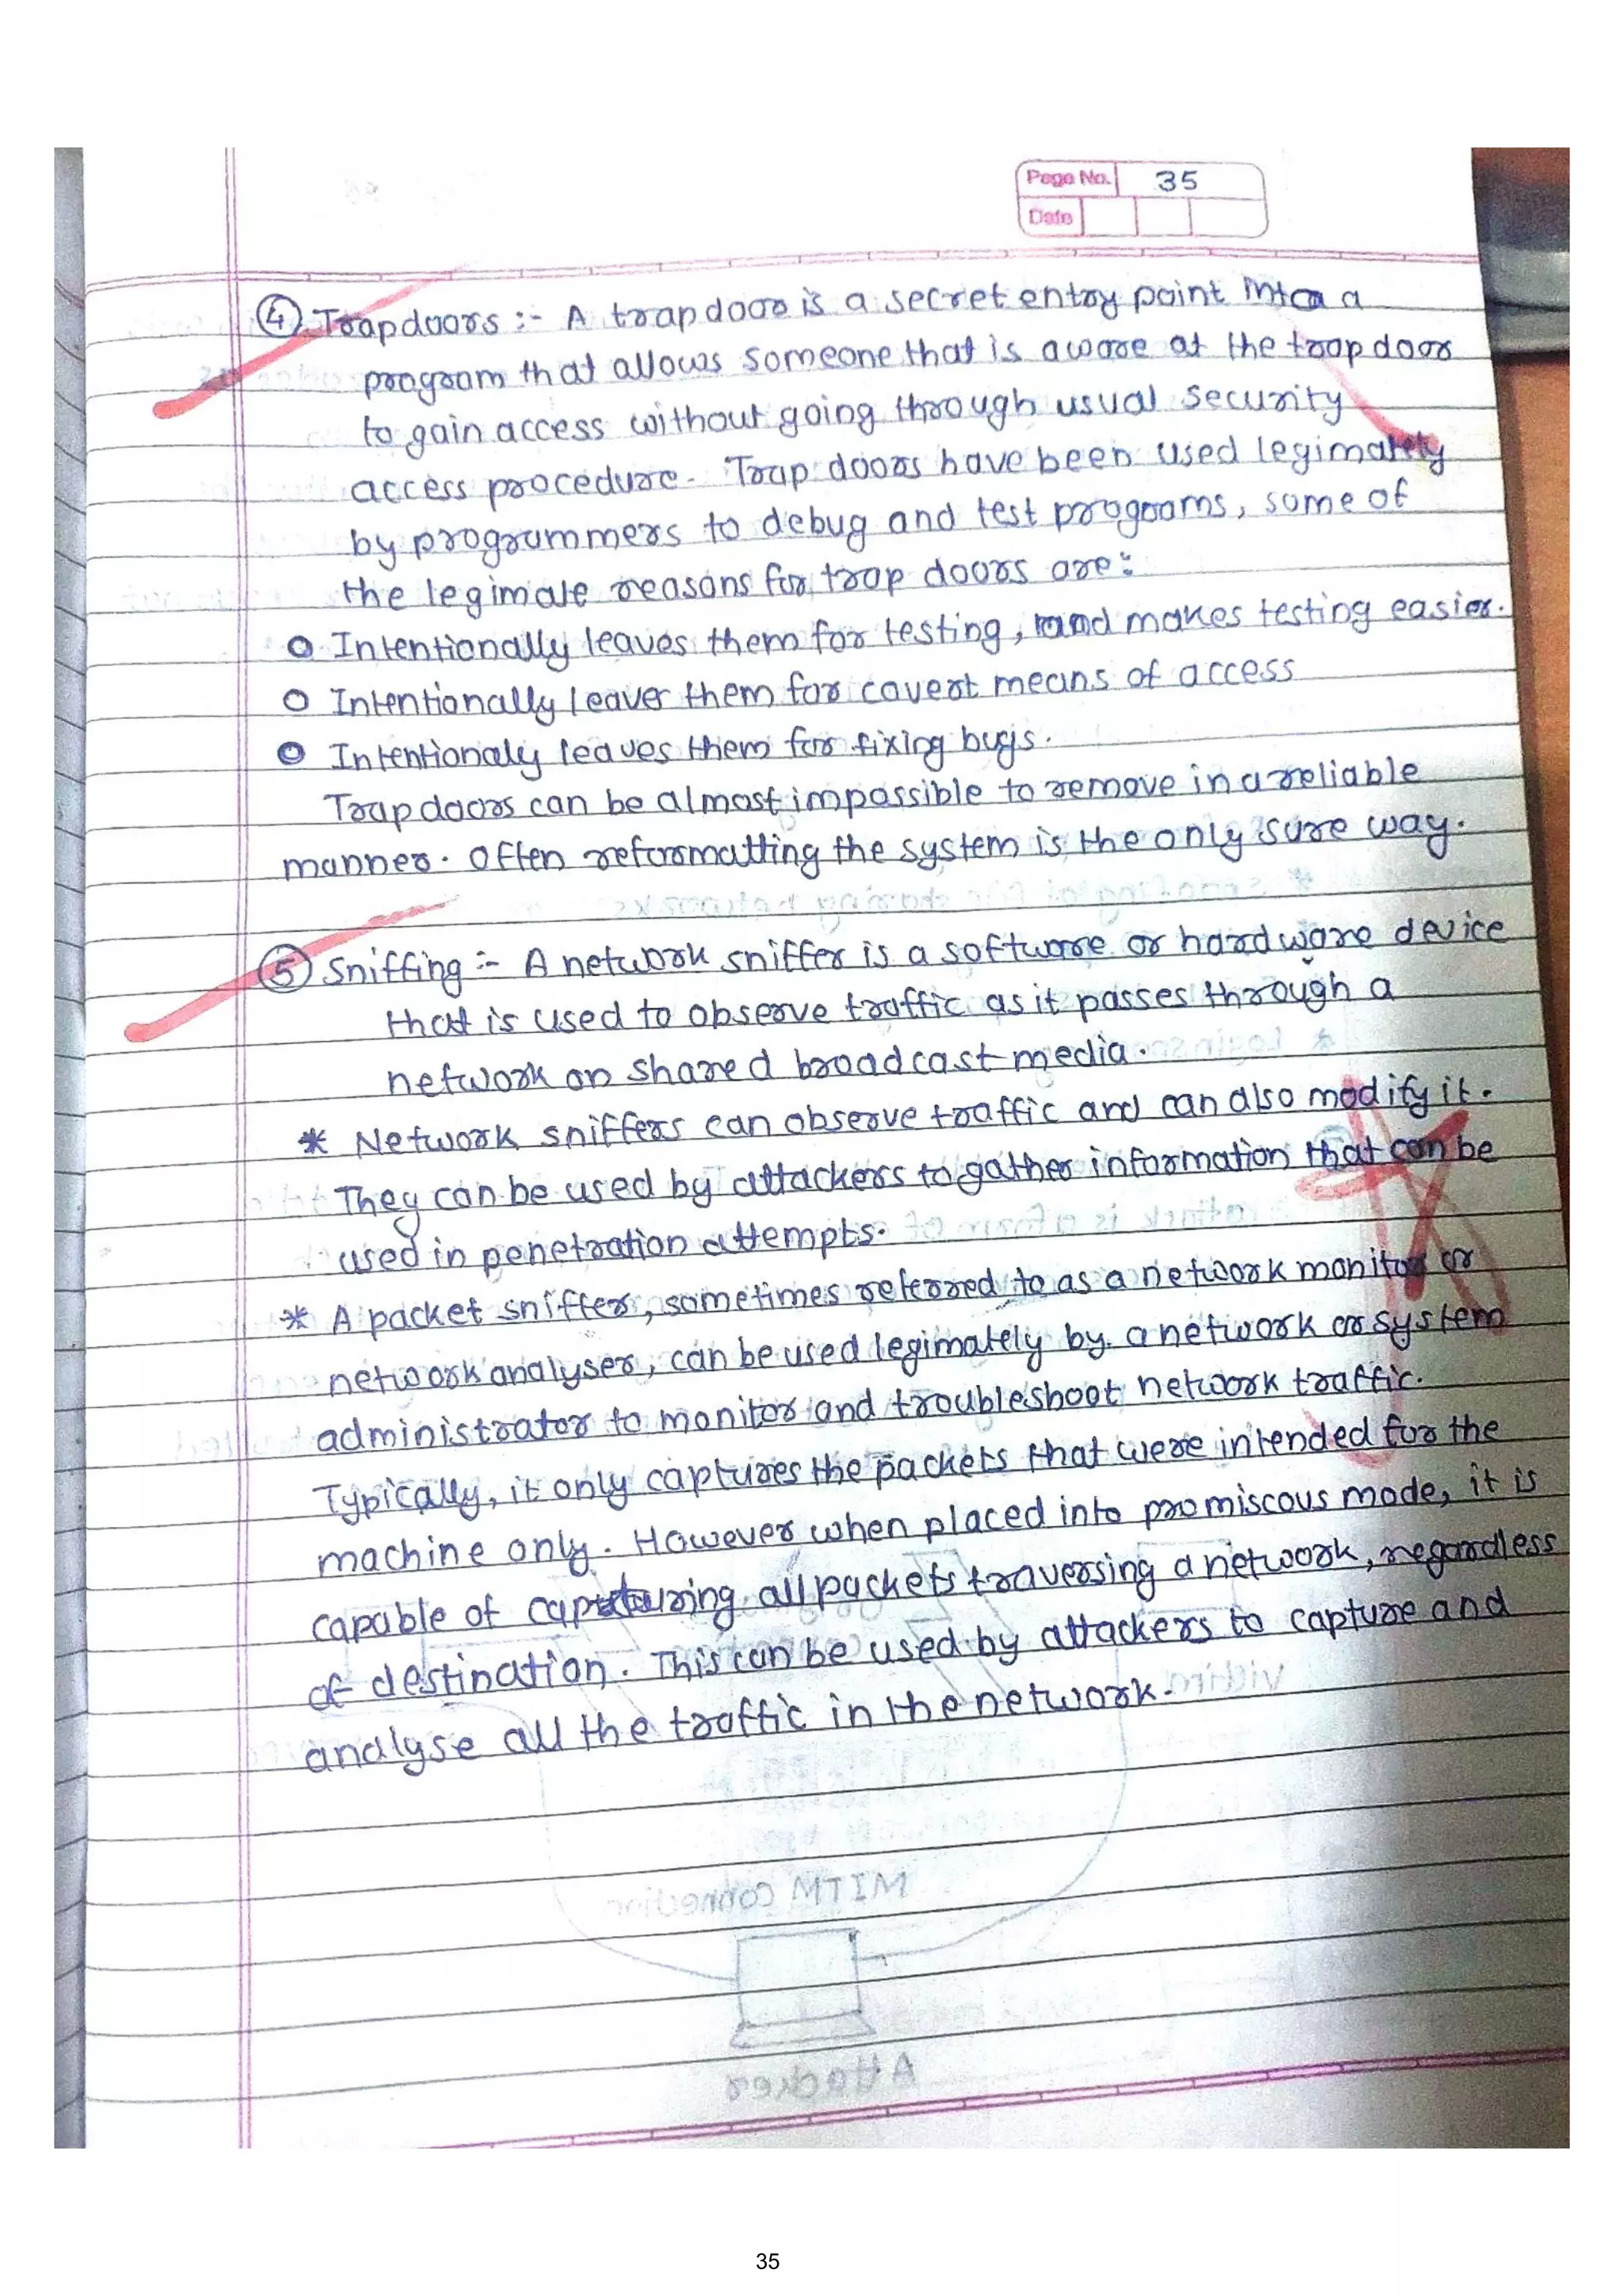 Page No. 35
Date
④ Trapdoors :- A trapdoor is a secret entry point into a
program that allows someone that is aware at the trapdoor
to gain access without going through usual security
access procedure. Trap doors have been used legimately
by programmers to debug and test programs, some of
the legimate reasons for trap doors are:
o Intentionally leaves them for testing, and makes testing easier.
o Intentionally leaves them for covert means of access
o Intentionaly leaves them for fixing bugs.
Trapdoors can be almost impossible to remove in a reliable
manner. Often reformatting the system is the only sure way.
⑤ Sniffing :- A network sniffer is a software or hardware device
that is used to observe traffic as it passes through a
network on shared broadcast media.
* Network sniffers can observe traffic and can also modify it.
They can be used by attackers to gather information that can be
used in penetration attempts.
* A packet sniffer, sometimes referred to as a network monitor or
network analyser, can be used legimately by a network or system
administrator to monitor and troubleshoot network traffic.
Typically, it only captures the packets that were intended for the
machine only. However when placed into promiscous mode, it is
capable of capturing all packets traversing a network, regardless
of destination. This can be used by attackers to capture and
analyse all the traffic in the network.
MITM Connection
Attacker
35